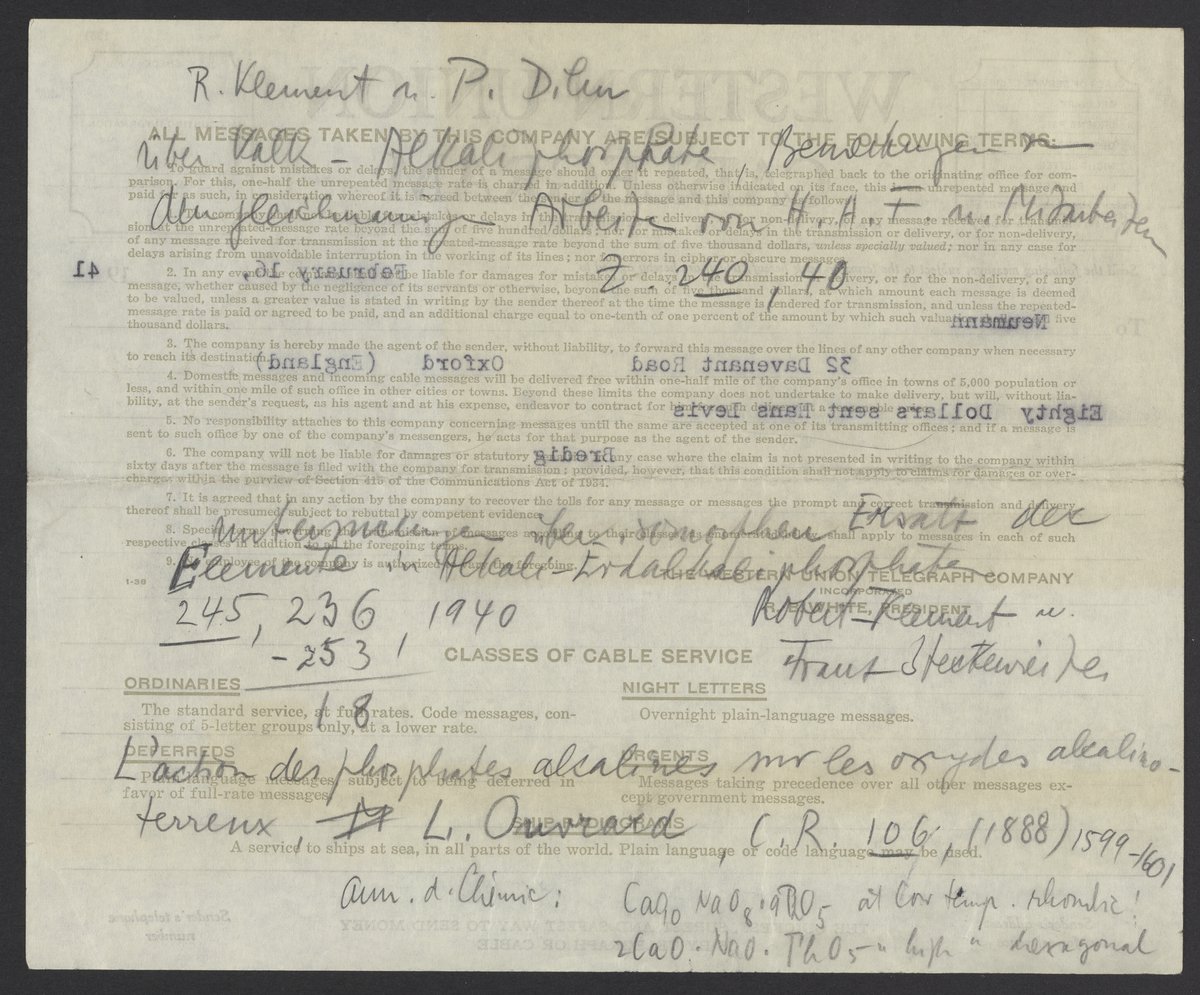 R. Klement u. P. Dihn
ALL MESSAGES TAKEN BY THIS COMPANY ARE SUBJECT TO THE FOLLOWING TERMS:
über Kalk - Alkali phosphate, Bemerkungen zu
To guard against mistakes or delays, the sender of a message should order it repeated, that is, telegraphed back to the originating office for com-
parison. For this, one-half the unrepeated message rate is charged in addition. Unless otherwise indicated on its face, this is an unrepeated message and
paid for as such, in consideration whereof it is agreed between the sender of the message and this company as follows:
den gleichnamigen Arbeiten von H. A. F. u. Mitarbeitern
of any message received for transmission at the repeated-message rate beyond the sum of five thousand dollars, unless specially valued; nor in any case for
delays arising from unavoidable interruption in the working of its lines; nor for errors in cipher or obscure messages.
Z. 240, 40
February 16, 41
2. In any event the company shall not be liable for damages for mistakes or delays in the transmission or delivery, or for the non-delivery, of any
message, whether caused by the negligence of its servants or otherwise, beyond the sum of five thousand dollars, at which amount each message is deemed
to be valued, unless a greater value is stated in writing by the sender thereof at the time the message is tendered for transmission, and unless the repeated-
message rate is paid or agreed to be paid, and an additional charge equal to one-tenth of one percent of the amount by which such valuation shall exceed five
thousand dollars.
Neumann
3. The company is hereby made the agent of the sender, without liability, to forward this message over the lines of any other company when necessary
to reach its destination.
32 Davenant Road Oxford (England)
4. Domestic messages and incoming cable messages will be delivered free within one-half mile of the company's office in towns of 5,000 population or
less, and within one mile of such office in other cities or towns. Beyond these limits the company does not undertake to make delivery, but will, without lia-
bility, at the sender's request, as his agent and at his expense, endeavor to contract for him for such delivery at a reasonable price.
Eighty Dollars sent Hans Levis
5. No responsibility attaches to this company concerning messages until the same are accepted at one of its transmitting offices; and if a message is
sent to such office by one of the company's messengers, he acts for that purpose as the agent of the sender.
6. The company will not be liable for damages or statutory penalties in any case where the claim is not presented in writing to the company within
sixty days after the message is filed with the company for transmission; provided, however, that this condition shall not apply to claims for damages or over-
charges within the purview of Section 415 of the Communications Act of 1934.
Bredig
7. It is agreed that in any action by the company to recover the tolls for any message or messages the prompt and correct transmission and delivery
thereof shall be presumed, subject to rebuttal by competent evidence.
8. Special terms governing the transmission of messages according to their classes, as enumerated below, shall apply to messages in each of such
respective classes in addition to all the foregoing terms.
9. No employee of the company is authorized to vary the foregoing.
Untersuchungen über isomorphen Ersatz der
Elemente in Alkali-Erdalkaliphosphaten
1-38
THE WESTERN UNION TELEGRAPH COMPANY
INCORPORATED
R. B. WHITE, PRESIDENT
245, 236, 1940 Robert Klement u.
-253
CLASSES OF CABLE SERVICE
ORDINARIES
The standard service, at full rates. Code messages, con-
sisting of 5-letter groups only, at a lower rate.
18
NIGHT LETTERS
Overnight plain-language messages.
DEFERREDS
Plain-language messages, subject to being deferred in
favor of full-rate messages.
URGENTS
Messages taking precedence over all other messages ex-
cept government messages.
L'action des phosphates alcalines sur les oxydes alcalino-
terreux, L. Ouvrard, C. R. 106, (1888) 1599-1601
SHIP RADIOGRAMS
A service to ships at sea, in all parts of the world. Plain language or code language may be used.
Ann. d. Chimie:
at low temp. rhombic!
" high " hexagonal
Sender's telephone
number